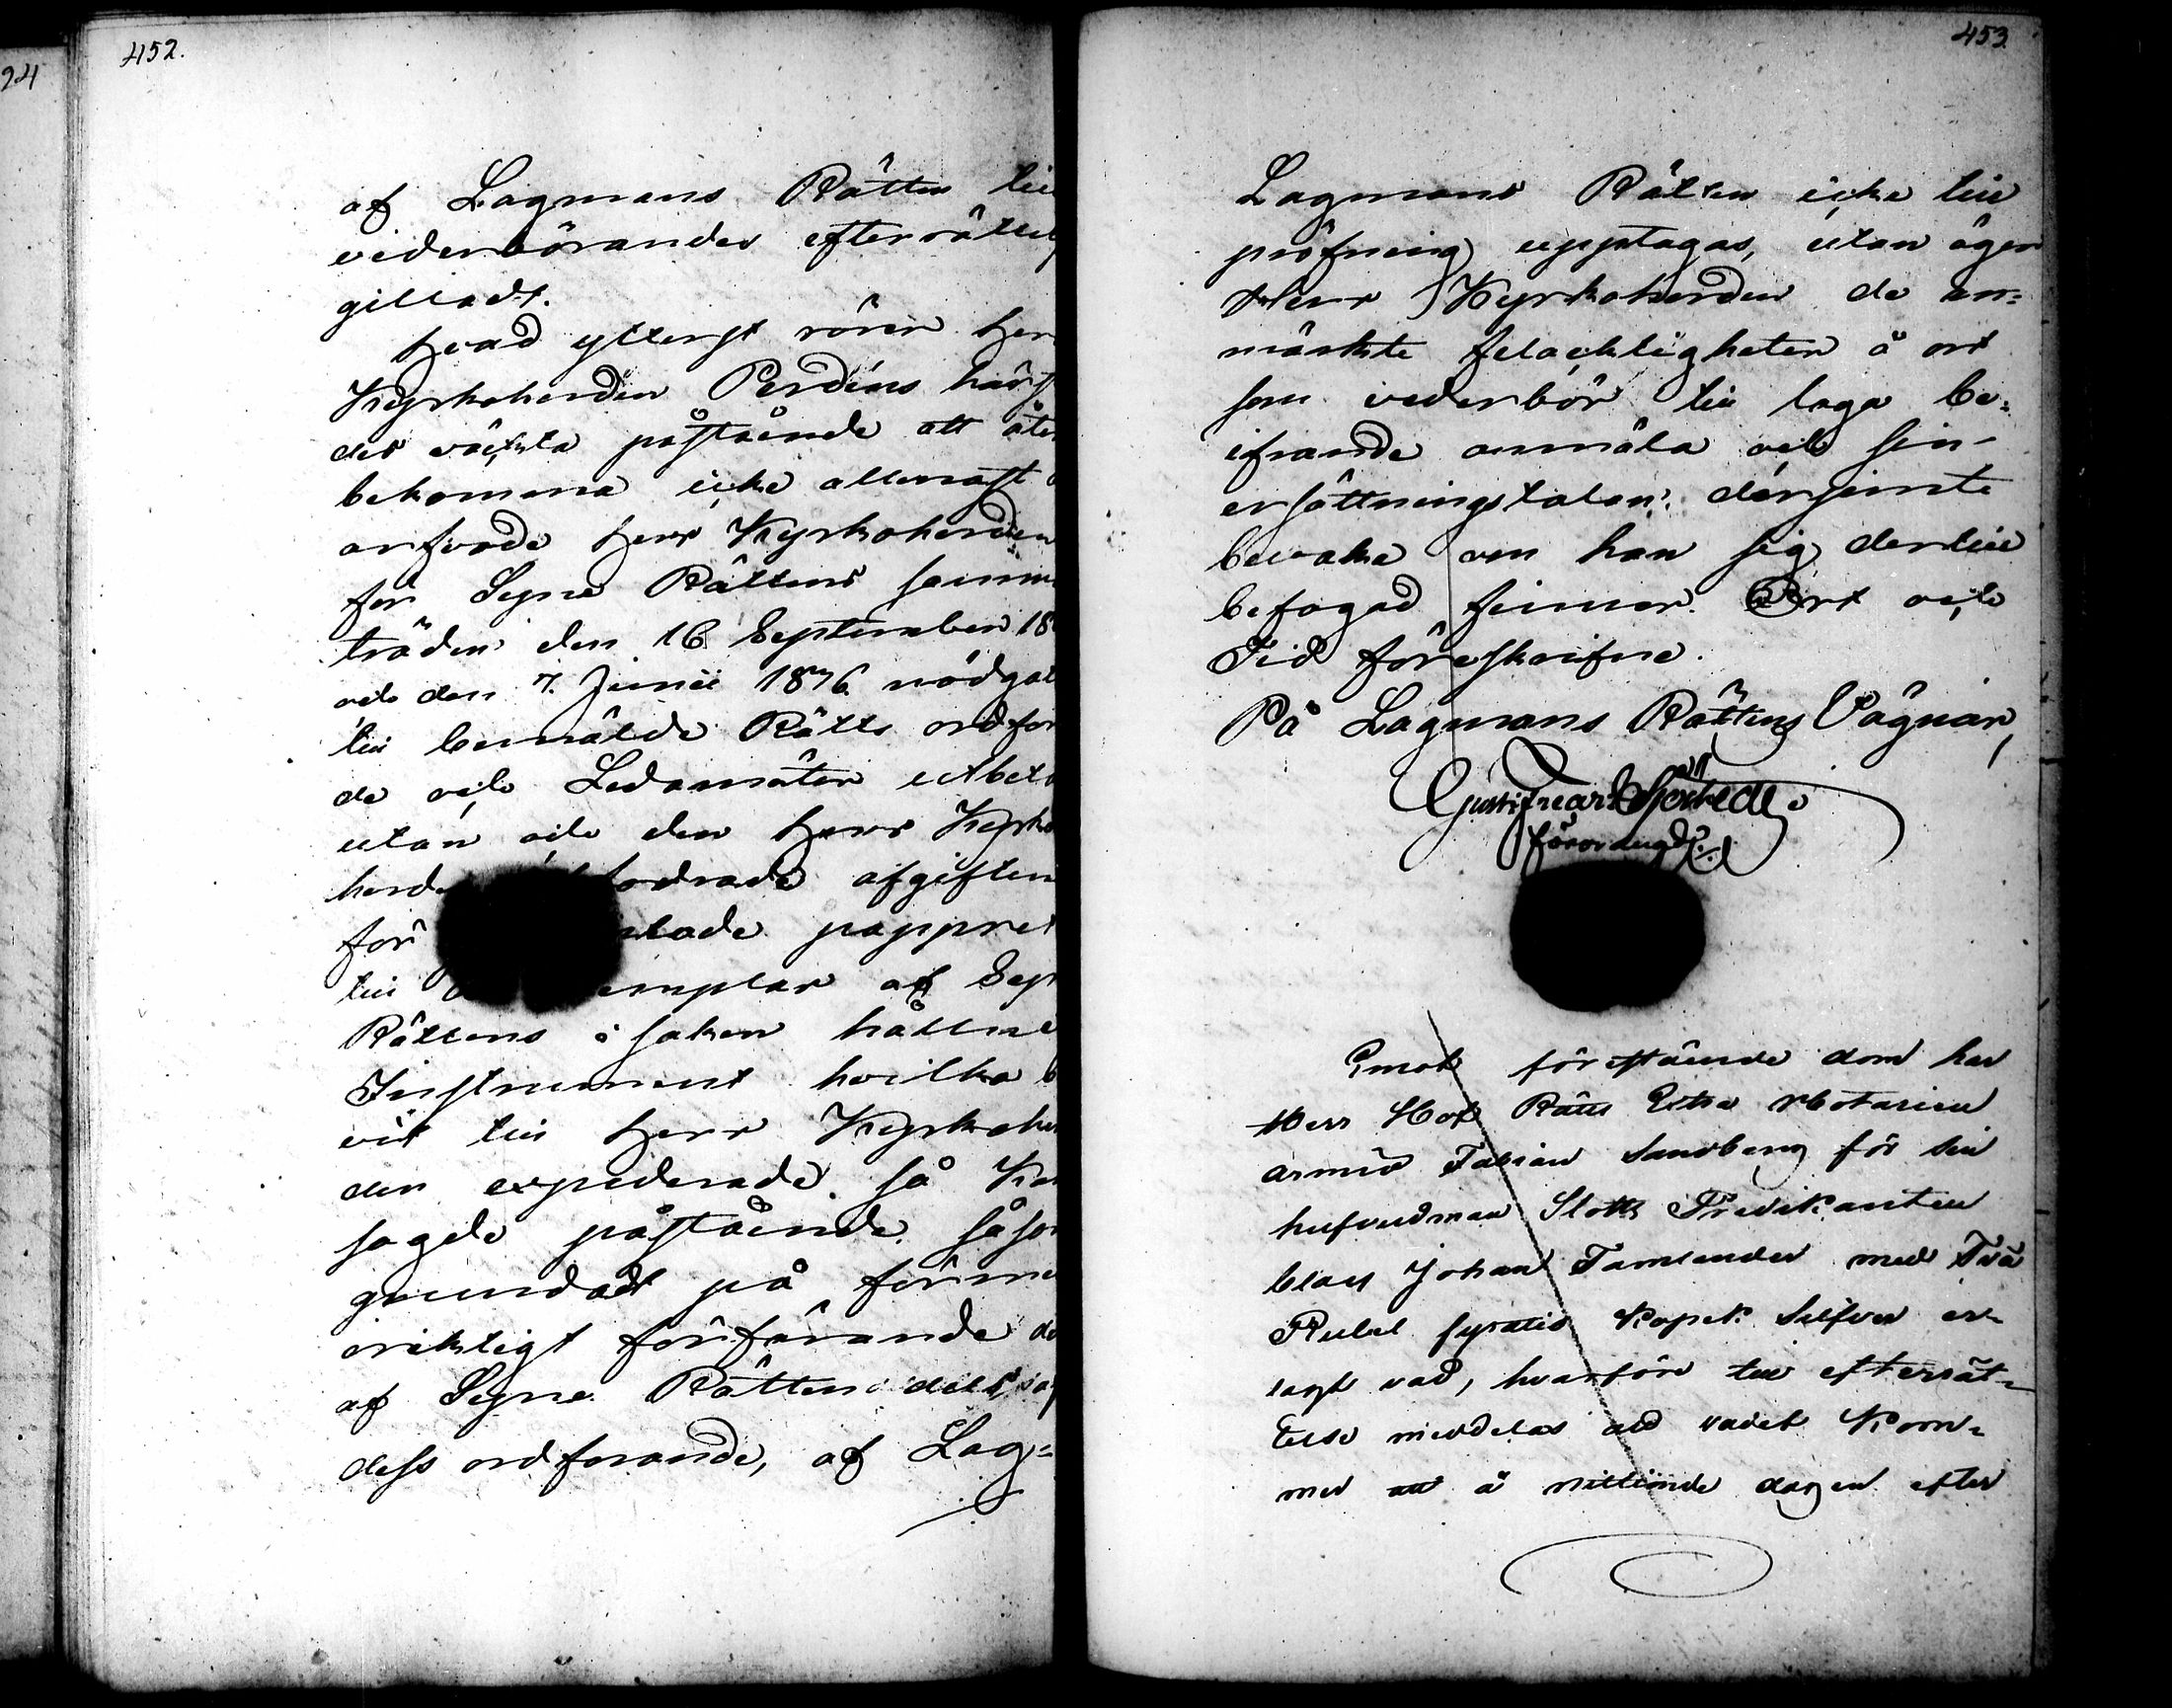 24
452.
af Lagmans Rätten till
vederbörandes efterrättel
gilladt.
Hvad ytterst rörer Herr
Kyrkoherden Perdéns härst
des väckta påstående att åter
bekomma icke allenast
arfvode Herr Kyrkoherden
för Syne Rättens samman
träden den 16 September 18
och den 7. Junii 1836 nödgat
till bemälde Rätts ordföran
de och Ledamöter utbeta
utan och den Herr Kyrko
herde fodrade afgiften
för lade pappret
till emplar af Syn
Rättens i saken hållne
Instrument hvilka b
vit till Herr Kyrkoher
den expederade, så Kan
sagde påstående såsom
grundadt på förme
oriktigt förfarande
af Syne Rätten
dess ordförande, af Lag=
453.
Lagmans Rätten icke till
pröfning upptagas, utan äger
Herr Kyrkoherden de an=
märkte felacktigheter å ort
som vederbör till laga be=
ifrande anmäla och sin
ersättningstalan derjemte
bevaka om han sig dertill
befogad finner. Ort och
Tid föreskrifne.
På Lagmans Rättens Vägnar,
förordnad
Emot förestående dom har
Herr Hof Rätts Extra Notarien
Arvid Fabian Sandberg för sin
hufvudman Slotts Predikanten
Claes Johan Tamlander med Två
Rubel fyratio Kopek Silfver er=
lagt vad, hvarföre till efterrät=
telse meddelas att vadet Kom=
mer att å nittionde dagen efter